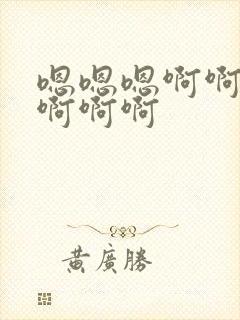 嗯嗯嗯啊啊
啊啊啊
黄廣勝